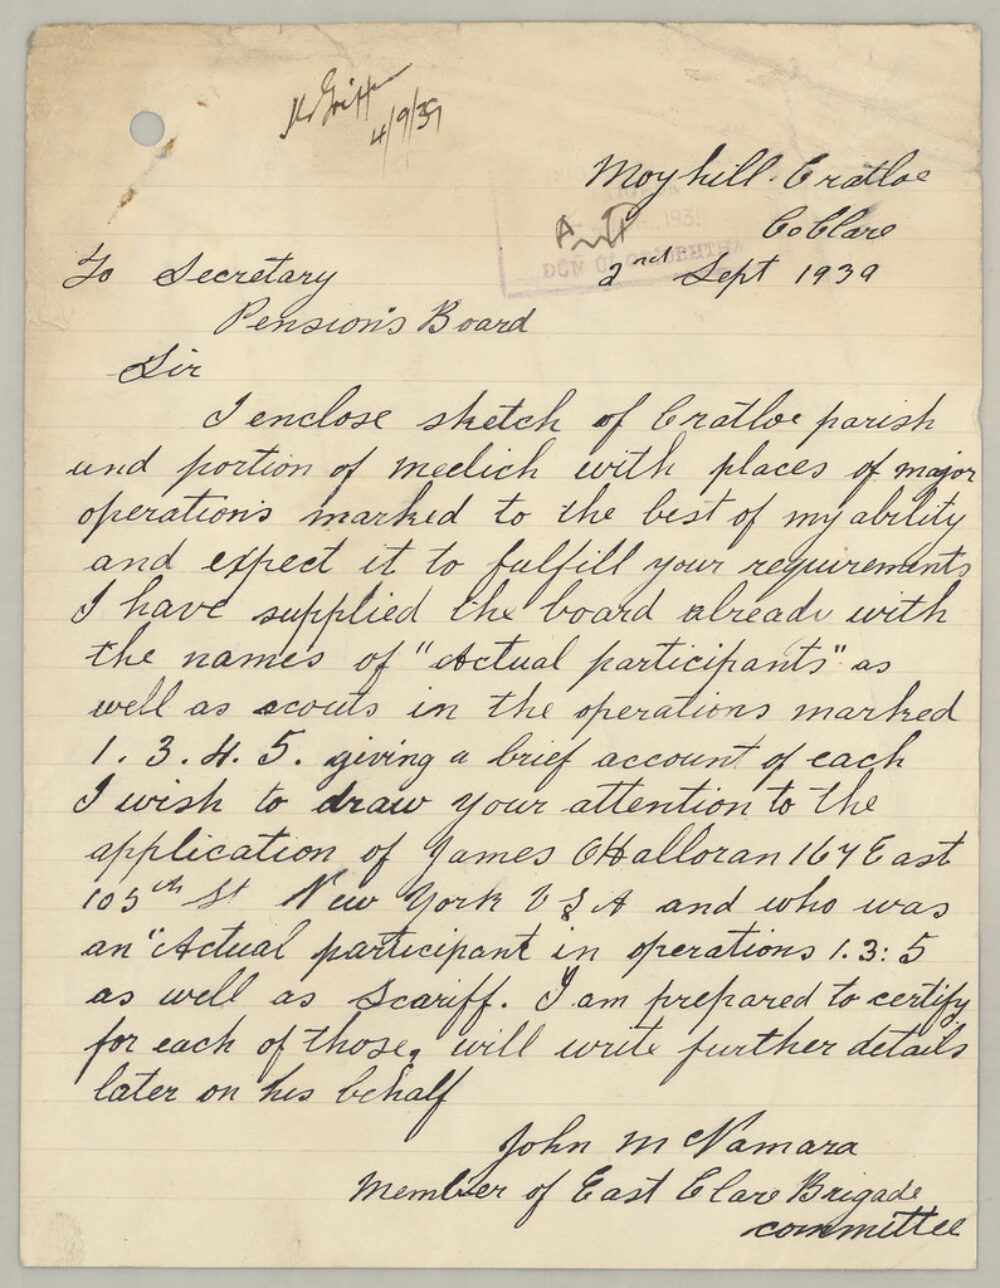 4/9/39
Moyhill. Cratloe
Co Clare
2nd Sept 1939
To Secretary
Pension's Board
Sir
I enclose sketch of Cratloe parish
and portion of Meelich with places of major
operations marked to the best of my ability
and expect it to fulfill your requirements
I have supplied the board already with
the names of "Actual participants" as
well as scouts in the operations marked
1. 3. 4. 5. giving a brief account of each
I wish to draw your attention to the
application of James OHalloran 167 East
105th St New York U S A and who was
an "Actual participant in operations 1. 3: 5
as well as Scariff. I am prepared to certify
for each of those, will write further details
later on his behalf
John McNamara
Member of East Clare Brigade
committee